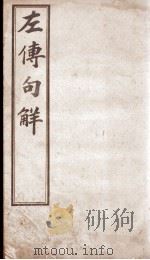 左傳句解
mtoou.info